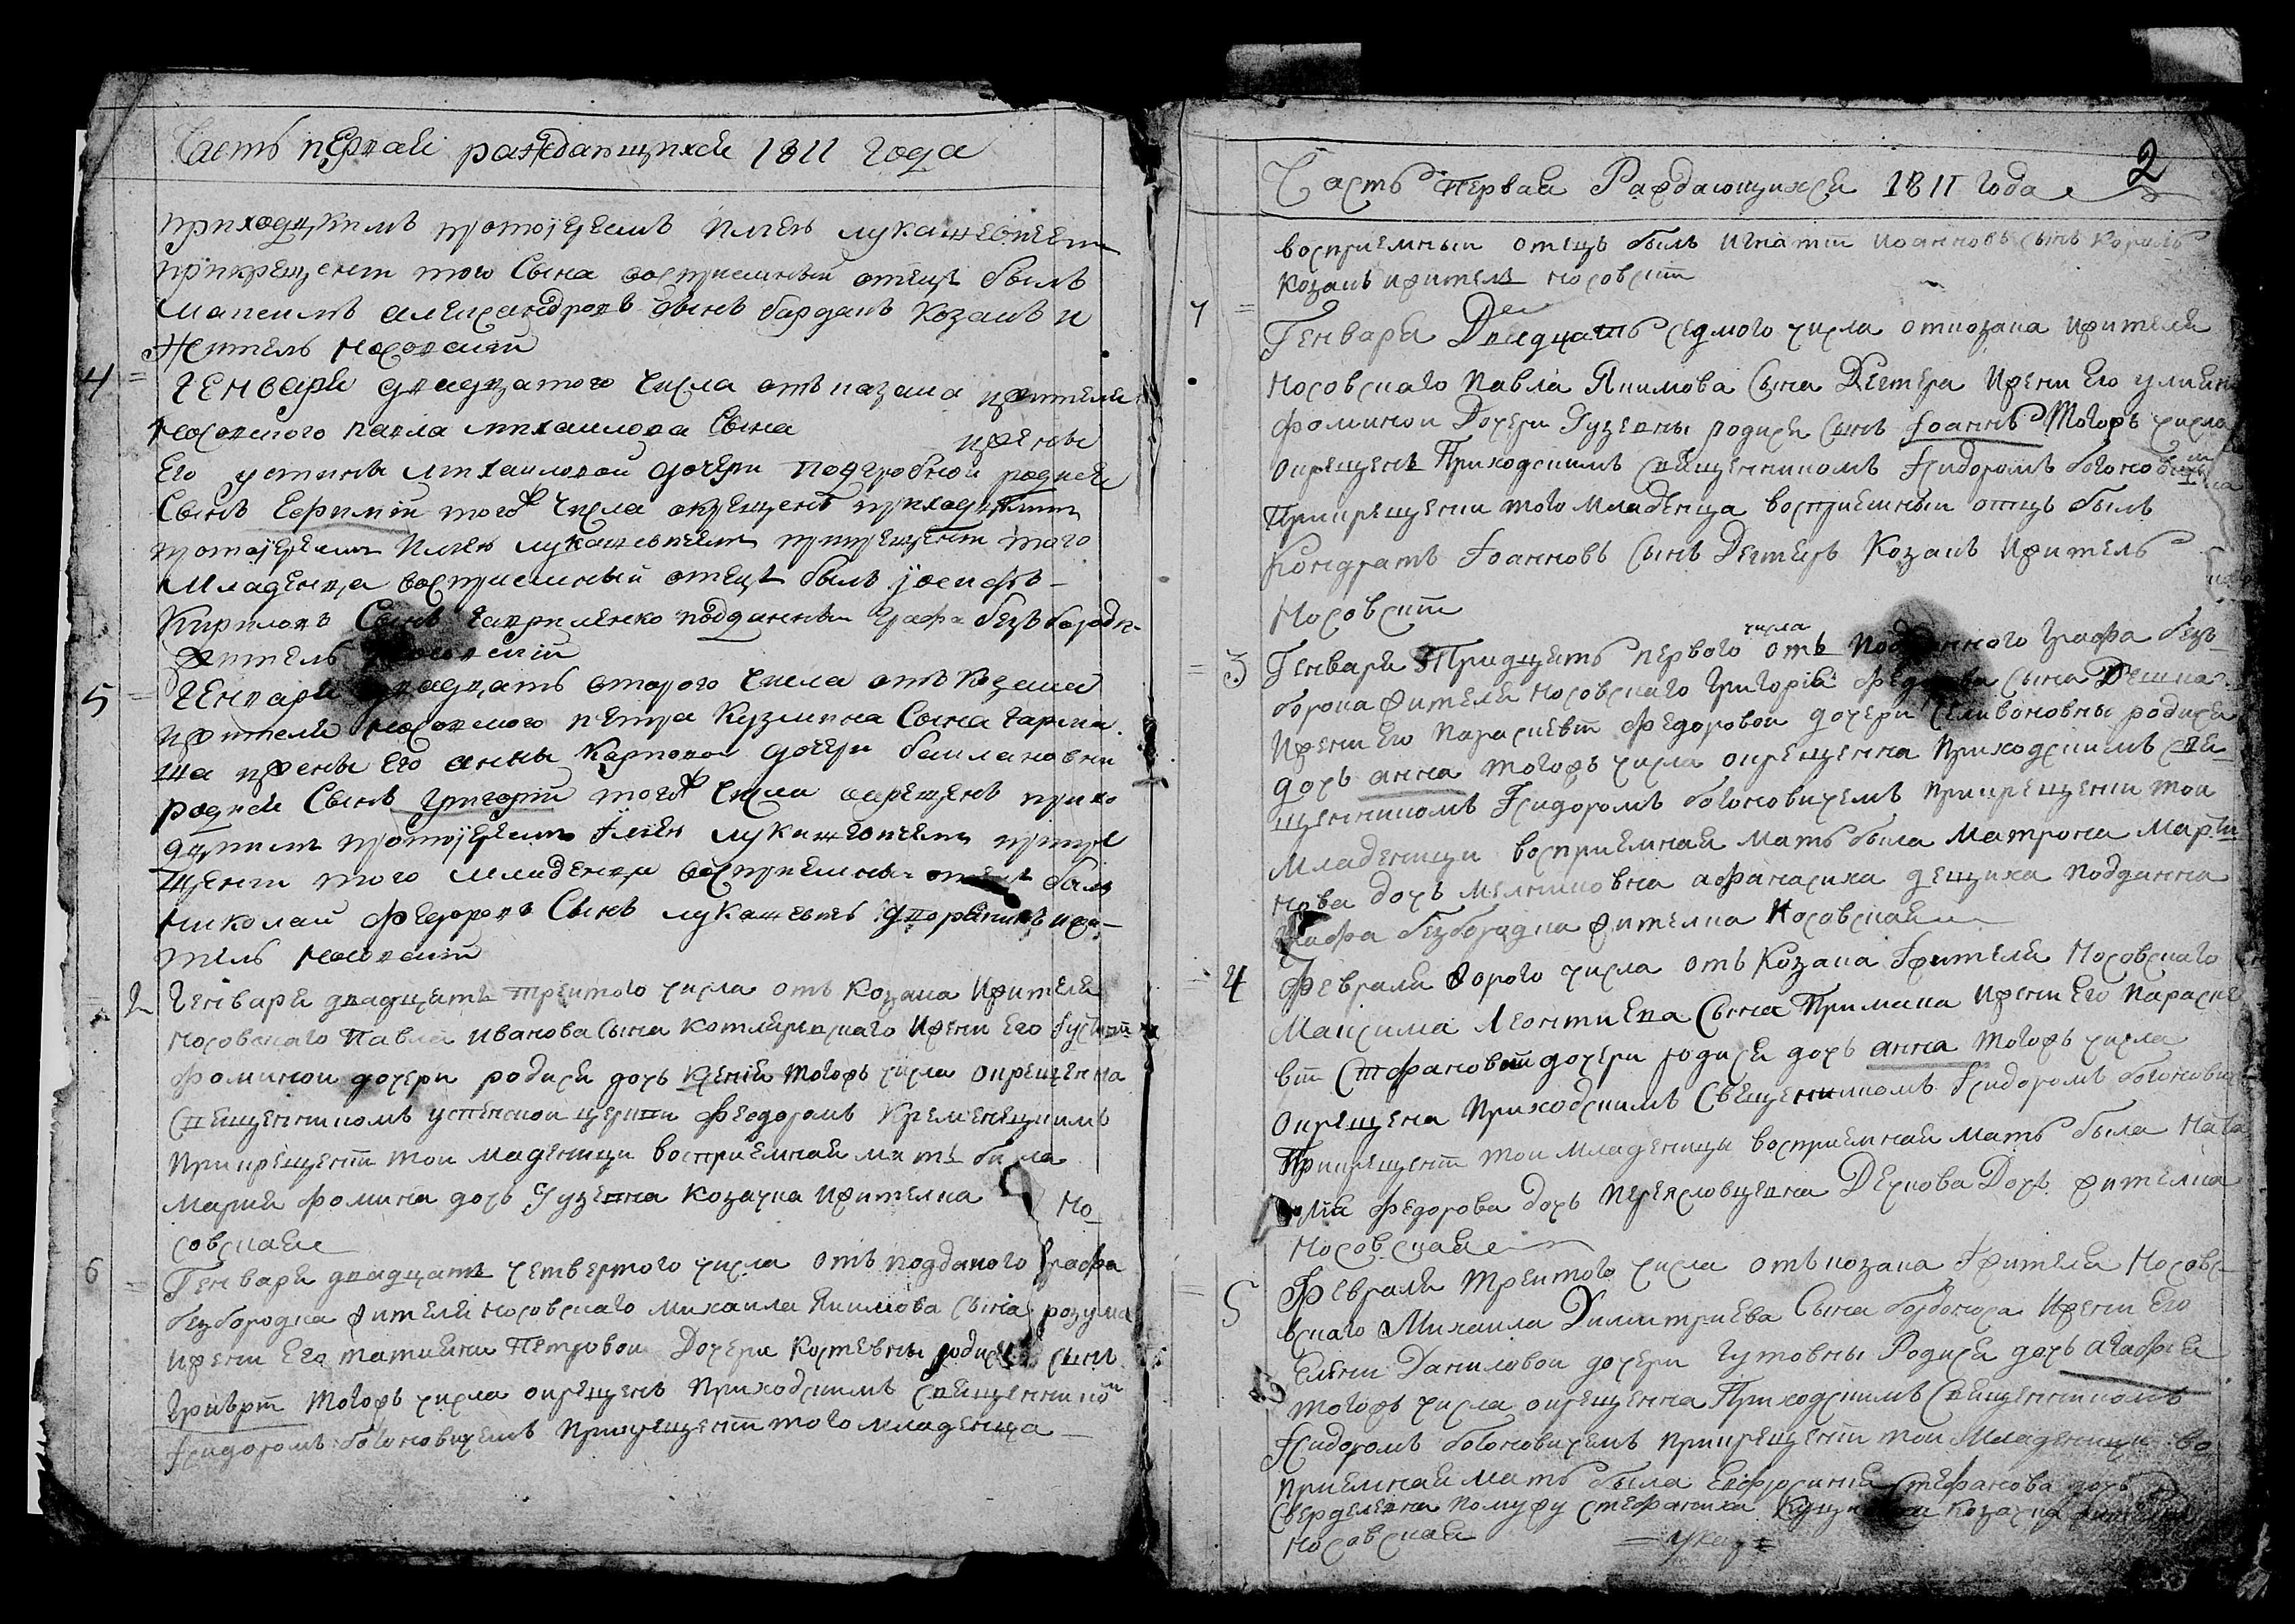 Часть первая раждающихся 1811 года
приходскимъ протоіереемъ Иліею лукашевичемъ
прикрещеніи того Сына воспріемный отецъ былъ
Максимъ александровъ сынъ бардакъ Козакъ и
Житель носовскій
4 = Генваря двадцатого числа отъ казака ижителя
носовского павла михаилова Сына ижены
Его устины михаиловой дочери подгробной родися
Сынъ Ефимій тогожъ числа окрещенъ приходскимъ
протоіереемъ Иліею лукашевичемъ прикрещеніи того
Младенца воспріемный отецъ былъ іосифъ
Кириловъ Сынъ гавриленко подданный Графа безбородк.
житель носовскій
5 = Генваря двадцать второго числа отъ Козака
ижителя носовского петра Кузмина Сына
ижены Его анны Карповой дочери
родися Сынъ Григорій тогожъ числа окрещенъ прихо
дскимъ протоіереемъ Іліею лукашевичемъ прикре
щеніи того младенца воспріемный отецъ былъ
николай федоровъ Сынъ лукашевичъ дворянинъ ижи-
тель носовскій
= 2 Генваря двадцать третого числа отъ Козака Ижителя
Носовскаго Павла Иванова Сына Котляревскаго Ижени Его Іустініи
Фоминои дочери родися дочь Ксенія тогожъ числа окрещенна
Священникомъ успенскои церкви Феодоромъ Кременецкимъ
Прикрещеніи тои маденици восприемная мать была
Мария Фомина дочь Гузевна Козачка Ижителка Но
совская
6 = Генваря двадцать четвертого числа отъ подданого Графа
безбородка жителя носовскаго Михаила Якимова Сына розума
Ижени Его татияни Петровои Дочери Костевны родися сынъ
Григорій тогожъ числа окрещенъ Приходскимъ Священникомъ
Ісидоромъ богоновичемъ Прикрещеніи того младенца
Часть Первая Раждающихся 1811 года 2
восприемныи отецъ былъ Игнатій Иоанновъ сынъ Король
Козакъ ижитель носовскій
7 = Генваря Двадцать седмого числа откозака Ижителя
Носовскаго Павла Якимова Сына Дегтера Ижени Его улияни
Фоминои Дочери Гузевны родися Сынъ Іоаннъ Тогожъ числа
окрещенъ Приходскимъ Священникомъ Ісидоромъ богоновичемъ
Прикрещении того Младенца восприемныи отецъ былъ
Кондратъ Іоанновъ Сынъ Дегтерь Козакъ Ижитель
Носовскій
= 3 Генваря Тридцать первого числа отъ Подданного Графа безъ
бороdка жителя носовскаго Григорія Федорова Сына
Ижени Его Параскевіи Федоровои дочери Селивоновны родися
дочь анна тогожъ числа окрещенна Приходскимъ свя
щенникомъ Ісидоромъ богоновичемъ Прикрещении тои
Младеници восприемная мать была Матрона Марти
нова дочь Мелниковна афанасиха дещиха подданна
Графа безбородка жителка Носовская
= 4 Февраля второго числа отъ Козака Іжителя Носовскаго
Максима Леонтиева Сына Примака Ижени Его Параске
віи Стефановой дочери родися дочь анна тогожъ числа
Окрещена Приходскимъ Священникомъ Ісидоромъ богонович
Прикрещеніи тои младеници восприемная мать была Ната
лія Федорова дочь Переясловцевна Деркова Дочь жителка
Носовская
= 5 Февраля третого числа откозака Іжителя Носов
вскаго Михаила Димитриева Сына Ижени Его
Елени Даниловои дочери Гутовны Родися дочь агафія
тогожъ числа окрещенна Приходскимъ Священникомъ
Ісидоромъ богоновичемъ прикрещеніи тои Младеници во
приемная мать была Евфросиния Стефанова дочь
Сверделевна помужу Стефаниха Козачка жителка
Носовская